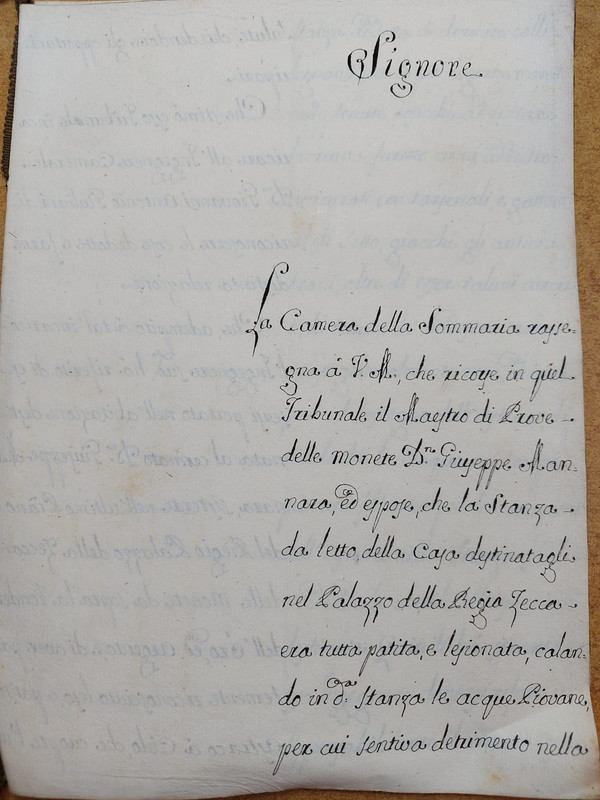 Signore
La Camera della Sommaria rasse=
gna á V. M., che ricorse in quel
Tribunale il Maestro di Prove
delle monete Dn. Giuseppe Man=
nara, ed espose, che la Stanza
da letto della Casa destinatagli
nel Palazzo della Regia Zecca
era tutta patita, e lesionata, calan=
do in da. stanza le acque Piovane,
per cui sentiva detrimento nella